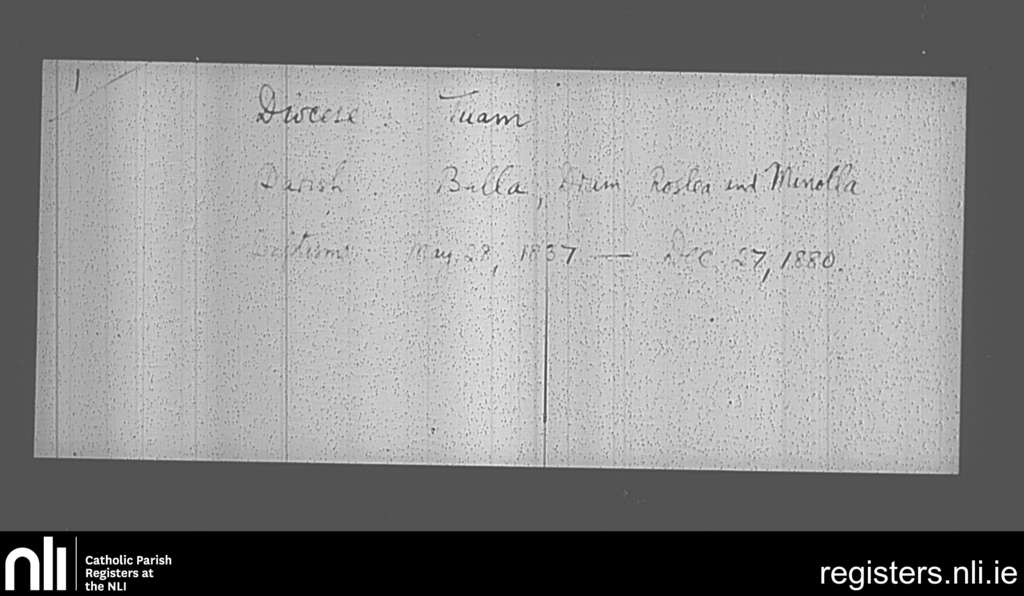 1
Diocese. Tuam
Parish. Balla, Drum, Roslea and Minolla
Baptisms. May 28, 1837 — Dec. 27, 1880.
nli
Catholic Parish
Registers at
the NLI
registers.nli.ie